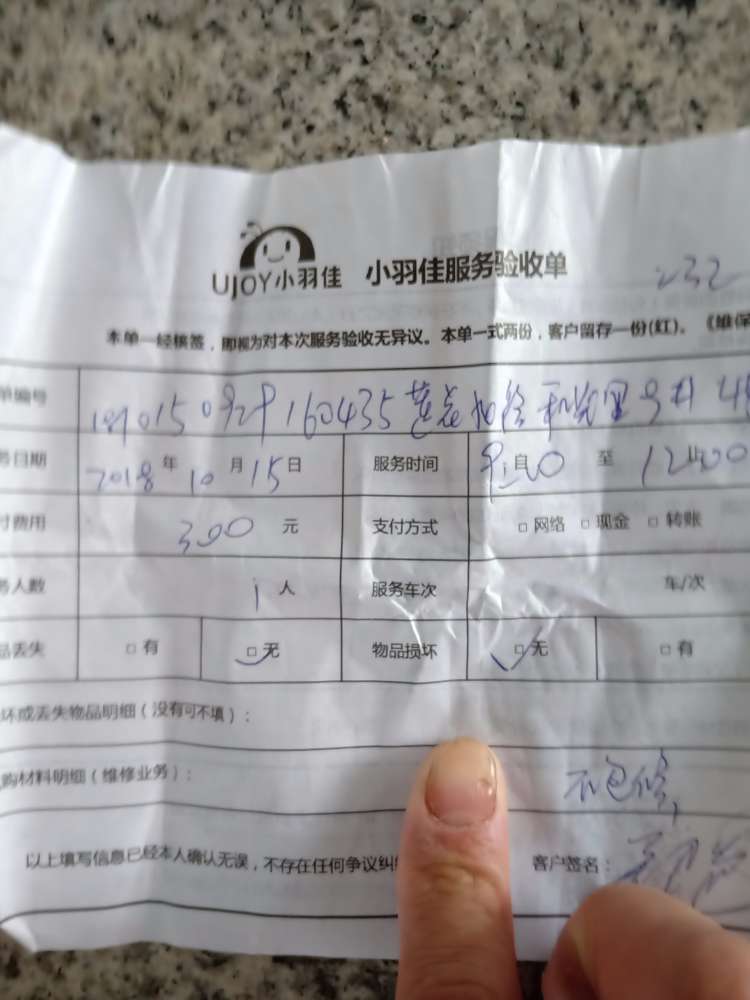 UJOY小羽佳 小羽佳服务验收单
232
本单一经核签，即视为对本次服务验收无异议。本单一式两份，客户留存一份(红)。《维保
单编号
日期 2018年10月15日 服务时间 自 至 12:00
付费用 300元 支付方式 □网络 □现金 □转账
务人数 1人 服务车次 车/次
品丢失 □有 □无 物品损坏 □无 □有
坏或丢失物品明细（没有可不填）：
购材料明细（维修业务）： 不包修
以上填写信息已经本人确认无误，不存在任何争议纠 客户签名：